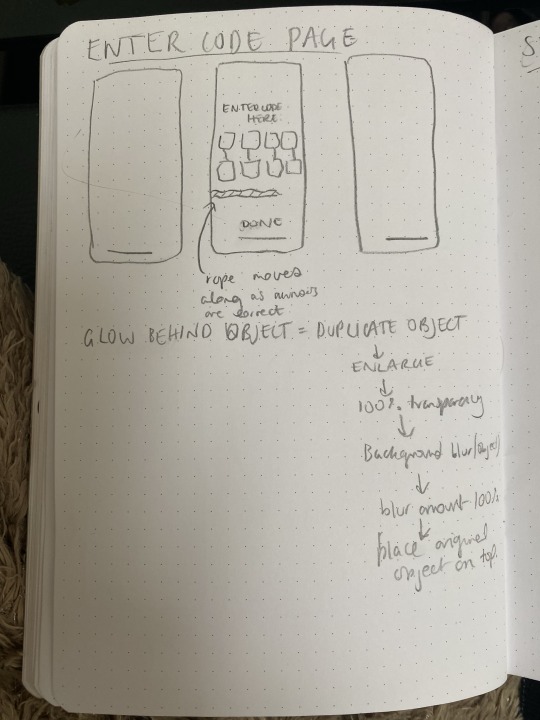 ENTER CODE PAGE
ENTER CODE
HERE
DONE
rope moves
along as
are correct
GLOW BEHIND OBJECT = DUPLICATE OBJECT
ENLARGE
100% transparency
Background blur (object)
blur amount 100%
place original
object on top
S